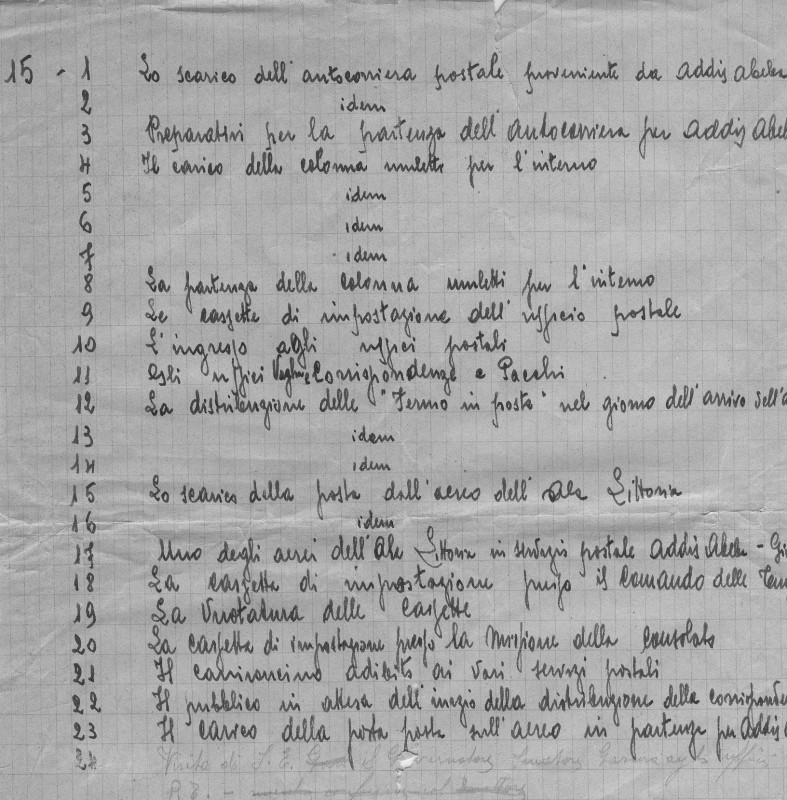 15 - 1 Lo scarico dell'autocorriera postale proveniente da Addis Abeba
2 idem
3 Preparativi per la partenza dell'autocorriera per Addis Abeb
4 Il carico della colonna muletti per l'interno
5 idem
6 idem
7 idem
8 La partenza della colonna muletti per l'interno
9 Le cassette di impostazione dell'ufficio postale
10 L'ingresso agli uffici postali
11 Gli uffici Vaglia e Corrispondenze e Pacchi
12 La distribuzione delle "Fermo in posta" nel giorno dell'arrivo dell'a
13 idem
14 idem
15 Lo scarico della posta dall'aereo dell'Ala Littoria
16 idem
17 Uno degli aerei dell'Ala Littoria in servizio postale Addis Abeba - Gi
18 La cassetta di impostazione presso il Comando delle
19 La Vuotatura delle cassette
20 La cassetta di impostazione presso la Missione della Consolata
21 Il camioncino adibito ai vari servizi postali
22 Il pubblico in attesa dell'inizio della distribuzione della corrisponden
23 Il carico della posta posta sull'aereo in partenza per Addis
24 Visita di S. E. il Governatore